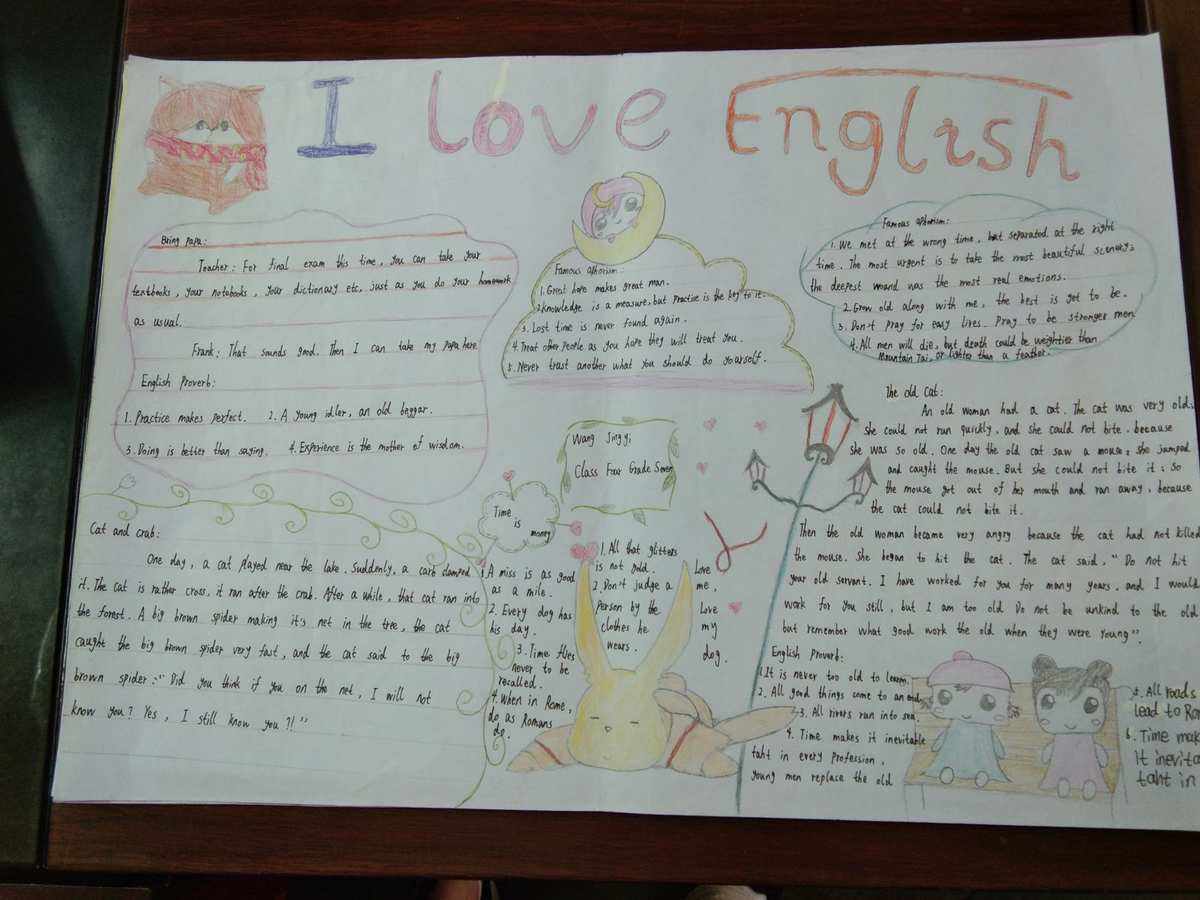 I Love English
Bring Papa:
Teacher: For final exam this time, you can take your
textbooks, your notebooks, your dictionary etc. just as you do your homework
as usual.
Frank: That sounds good. Then I can take my Papa here
English Proverb:
1. Practice makes perfect. 2. A young idler, an old beggar.
3. Doing is better than saying. 4. Experience is the mother of wisdom.
Famous
1. Great hope makes great man.
2. knowledge is a measure, but Practice is the key to it.
3. Lost time is never found again.
4. Treat other people as you hope they will treat you.
5. Never trast another what you should do yourself.
Famous Aphorism:
1. We met at the wrong time, but separated at the right
time. The most urgent is to take the most beautiful scenery;
the deepest wound was the most real emotions.
2. Grow old along with me, the best is yet to be.
3. Don't pray for easy lives. Pray to be stronger men.
4. All men will die, but death could be weightier than
Mountain Tai, or lighter than a feather.
Wang Jing yi
Class Four Grade Seven
The old Cat:
An old woman had a cat. The cat was very old;
she could not run quickly, and she could not bite, because
she was so old. One day the old cat saw a mouse; she jumped
and caught the mouse. But she could not bite it; so
the mouse got out of her mouth and ran away, because
the cat could not bite it.
Then the old woman became very angry because the cat had not killed
the mouse. She began to hit the cat. The cat said, "Do not hit
your old servant. I have worked for you for many years, and I would
work for you still, but I am too old. Do not be unkind to the old
but remember what good work the old when they were young".
Cat and crab:
One day, a cat played near the lake. Suddenly, a
it. The cat is rather cross, it ran after the crab. After a while, that cat ran into
the forest. A big brown spider making it's net in the tree, the cat
caught the big brown spider very fast, and the cat said to the big
brown spider:"Did you think if you on the net, I will not
know you? Yes, I still know you?!"
Time
is
money
1. A miss is as good
as a mile.
2. Every dog has
his day.
3. Time flies
never to be
recalled.
4. When in Rome,
do as Romans
do.
1. All that glitters
is not gold.
2. Don't judge a
Person by the
clothes he
wears.
Love
me,
Love
my
dog.
English Proverb:
1. It is never too old to learn.
2. All good things come to an end.
3. All rivers run into sea.
4. Time makes it inevitable
taht in every profession,
young men replace the old
5. All roads
lead to
6. Time
it
taht in